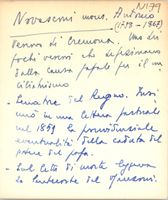 N179
Novasconi mons. Antonio
(1798-1867)
Vescovo di Cremona. Uno dei
pochi vescovi che si
dalla causa papale per il
- Senatore del Regno.
in una lettera pastorale
nel 1859 la provvidenziale
eventualità della caduta del
potere del papa.
- Sul letto di morte
la Pentecoste del Manzoni.